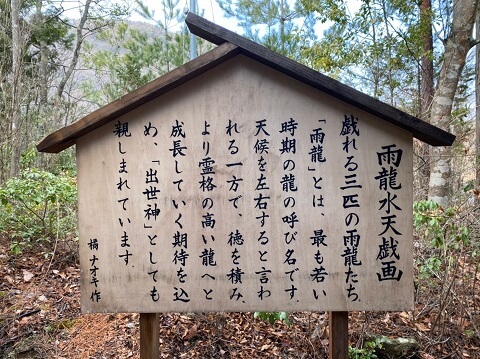 雨龍水天戯画
戯れる三匹の雨龍たち
「雨龍」とは、最も若い
時期の龍の呼び名です.
天候を左右すると言わ
れる一方で、徳を積み
より霊格の高い龍へと
成長していく期待を込
め、「出世神」としても
親しまれています.
橘 ナオキ 作